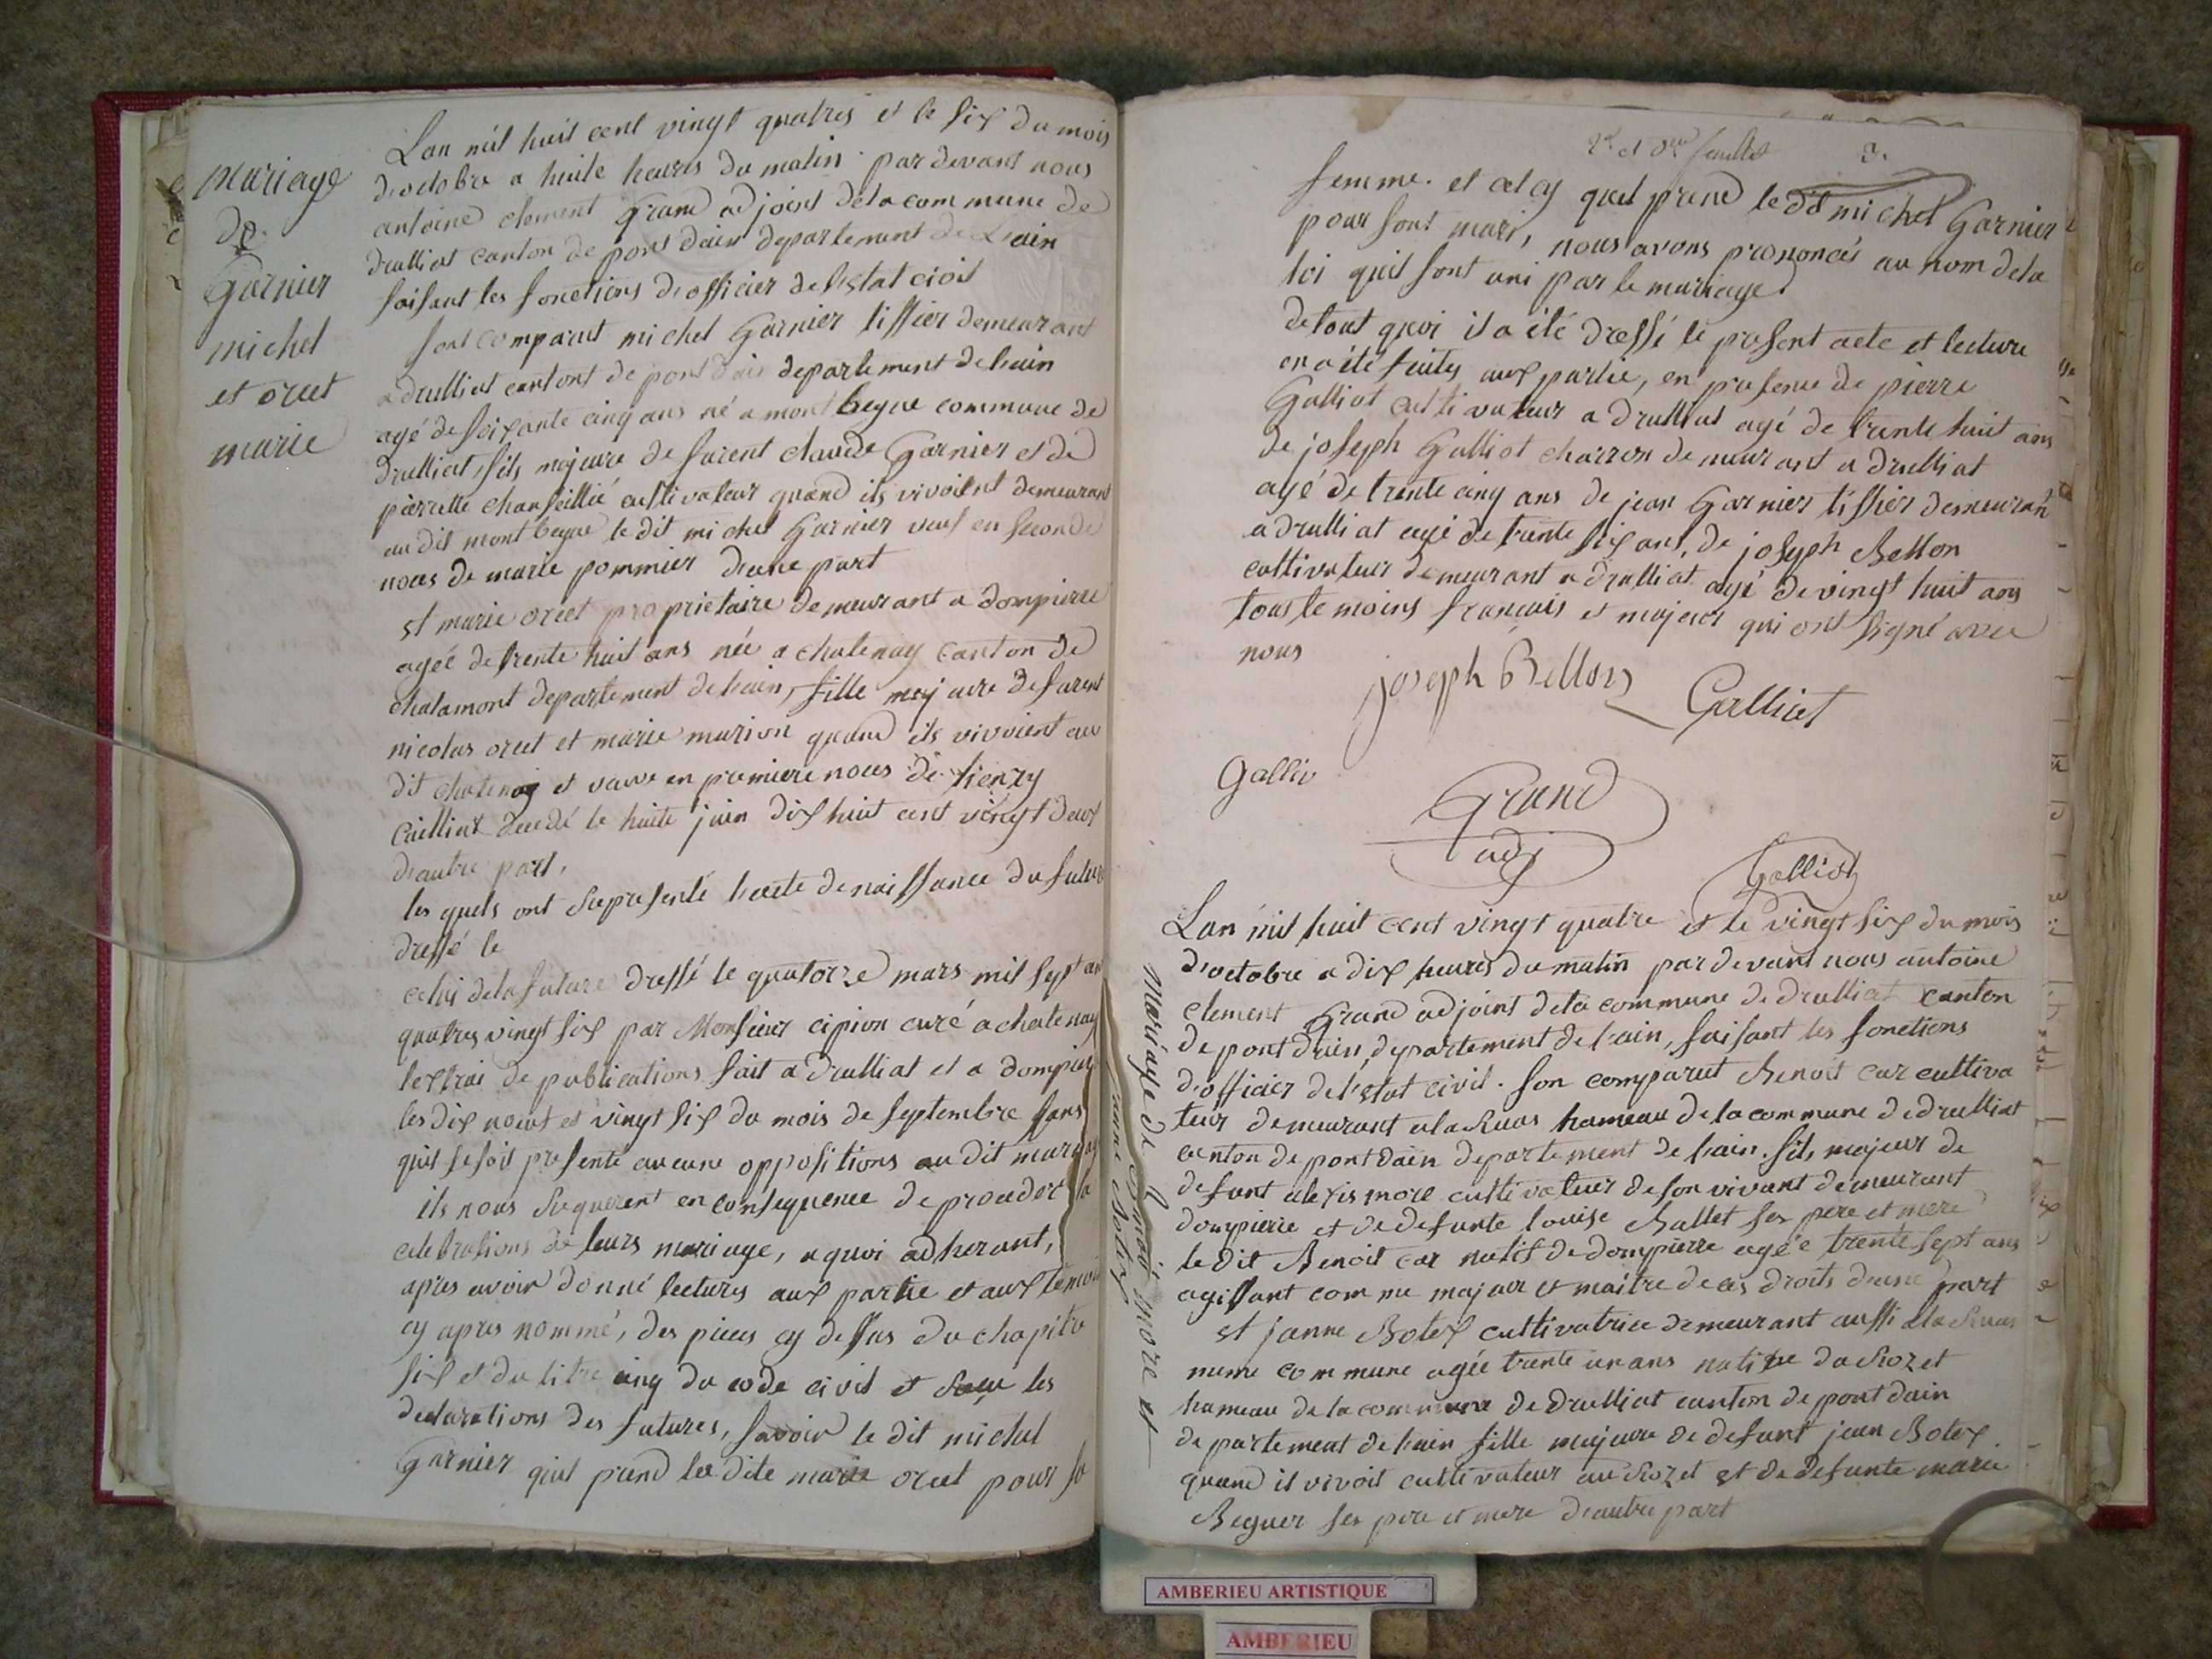 mariage
de
Garnier
michel
et oret
marie
Lan mil huit cent vingt quatres et le six du mois
d'octobre a huite heures du matin par devant nous
antoine clement Grand adjoint de la commune de
druilliat canton de pont dain departement de Lain
faisant les fonctions d'officier de l'estat civit
sont comparut michel Garnier tissier demeurant
a druilliat cantont de pont dain departement de lain
agé de soixante cinq ans né a mont begue commune de
druilliat, fils majeure de furent claude Garnier et de
pierrette chanseillié cultivateur quand ils vivoient demeurant
au dit mont begue le dit michel Garnier veuf en seconde
noces de marie pommier d'une part
et marie oret proprietaire demeurant a dompierre
agée de trente huit ans née a chatenay canton de
chalamont departement de lain, fille majeure de furent
nicolas oret et marie marion quand ils vivoient au
dit chatenay et vauve en premiere noces de hienry
Cailliat decedé le huite juin dix huit cent vingt deux
d'autre part,
les quels ont represenlé lacte de naissance du futur
dressé le
celui de la future dressé le quatorze mars mil sept
quatres vingt six par Monsieur cipion curé a chatenay
lextrai de publications fait a druilliat et a dompier
les dix neuf et vingt six du mois de septembre sans
quil se soit presente aucune oppositions au dit mariag
ils nous requerent en consequence de proceder a
celebrations de leurs mariage, a quoi adherant,
apres avoir donné lectures aux partie et aux temoi
cy apres nommé, des pieces cy dessus du chapitre
six et du titre cinq du code civil et les
declarations des futures, savoir le dit michel
Garnier quil prend la dite marie oret pour sa
2d et der feuillet
3.
femme. et celcy quel prend le dit michel Garnier
pour sont mari, nous avons prononcés au nom dela
loi quil sont uni par le mariage.
de tout quoi il a été dressé le present acte et lecture
en a été faites aux partie, en presence de pierre
Galliot cultivateur a druilliat agé de trente huit ans
de joseph Galliot charron demeurant a druilliat
agé de trente cinq ans de jean Garnier tissier demeurant
a druilliat agé de trente six ans, de joseph Bellon
cultivateur demeurant a druilliat agé de vingt huit ans
tous temoins francais et majeur qui ont signé avec
nous
joseph Bellon
Galliot
Galliv
Grand
adj
Galliot
mariage de Benoit more et
janne Botex
Lan mil huit cent vingt quatre et le vingt six du mois
d'octobre a dix heures du matin par devant nous antoine
clement Grand adjoint dela commune de druilliat canton
de pont dain departement de lain, faisant les fonctions
d'officier de l'estat civil. son comparut Benoit car cultiva
teur demeurant ala Ruas hameau de la commune de druilliat
canton de pont dain departement de lain. fils majeur de
defunt alexis more cultivateur de son vivant demeurant
dompierre et de defunte louise Ballet ses pere et mere
le dit Benoit car natif de dompierre agée trente sept ans
agissant comme majeur et maitre de ces droits d'une part
et janne Botex cultivatrice demeurant aussi ala Ruas
meme commune agée trente un ans native du Rozet
hameau de la commune de druilliat canton de pont dain
departement de lain fille majeure de defunt jean Botex
quand il vivoit cultivateur au Rozet et de defunte marie
Beguer ses pere et mere d'autre part
AMBERIEU ARTISTIQUE
AMBERIEU